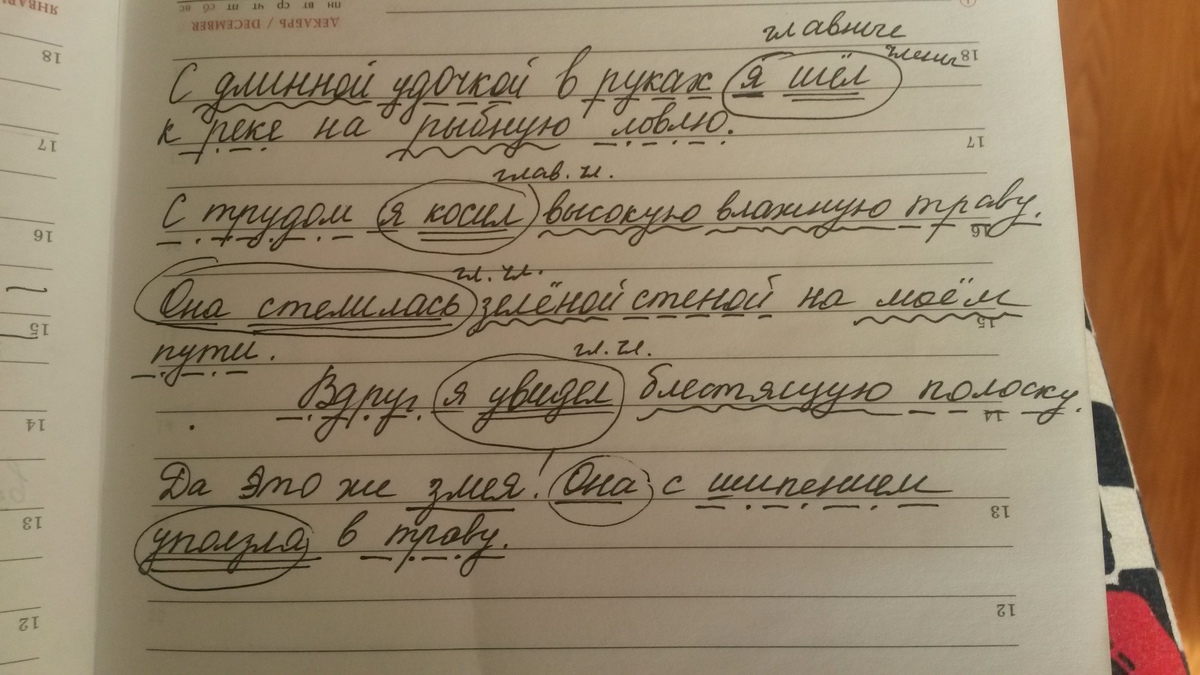 главные
члены
С длинной удочкой в руках я шёл
к реке на рыбную ловлю.
глав. чл.
С трудом я косил высокую влажную траву.
гл. чл.
Она стелилась зелёной стеной на моём
пути.
гл. чл.
Вдруг я увидел блестящую полоску.
Да это же змея! Она с шипением
уползла в траву.
ДЕКАБРЬ / DECEMBER
ПН ВТ СР ЧТ ПТ СБ ВС
18
17
16
15
14
13
12
ЯНВАРЬ
18
17
16
15
14
13
12